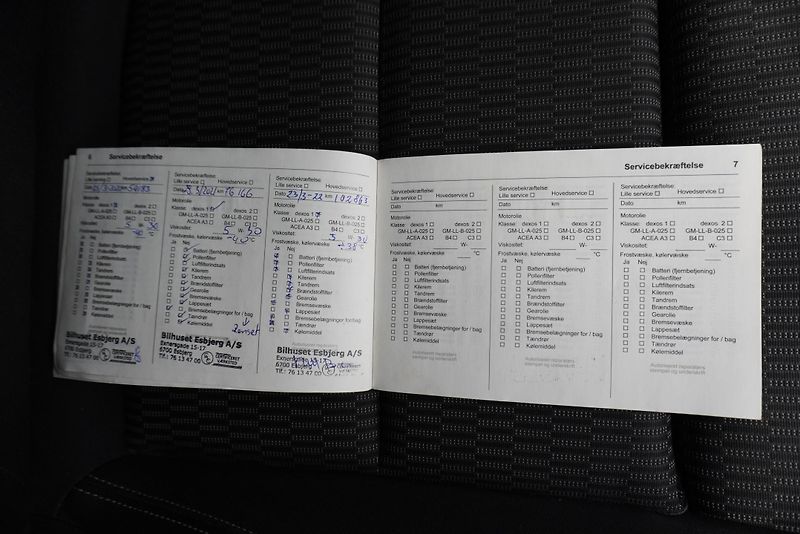 6 Servicebekræftelse
Servicebekræftelse
Lille service Hovedservice
Dato km
Motorolie
Klasse: dexos 1 dexos 2
GM-LL-A-025 GM-LL-B-025
ACEA A3 B4 C3
Viskositet:
Frostvæske, kølervæske
Ja Nej
Batteri (fjernbetjening)
Pollenfilter
Luftfilterindsats
Kilerem
Tandrem
Brændstoffilter
Gearolie
Bremsevæske
Lappesæt
Bremsebelægninger for / bag
Tændrør
Kølemiddel
Bilhuset Esbjerg A/S
Exnersgade 15-17
6700 Esbjerg
Tlf.: 76 13 47 00
Servicebekræftelse
Lille service Hovedservice
Dato km 76166
Motorolie
Klasse: dexos 1 dexos 2
GM-LL-A-025 GM-LL-B-025
ACEA A3 B4 C3
Viskositet: 5 W 30
Frostvæske, kølervæske -40 °C
Ja Nej
Batteri (fjernbetjening)
Pollenfilter
Luftfilterindsats
Kilerem
Tandrem
Brændstoffilter
Gearolie
Bremsevæske
Lappesæt
Bremsebelægninger for / bag
Tændrør
Kølemiddel
renset
Bilhuset Esbjerg A/S
Exnersgade 15-17
6700 Esbjerg
Tlf.: 76 13 47 00
Servicebekræftelse
Lille service Hovedservice
Dato 23/3-22 km 102863
Motorolie
Klasse: dexos 1 dexos 2
GM-LL-A-025 GM-LL-B-025
ACEA A3 B4 C3
Viskositet: 5 W 30
Frostvæske, kølervæske -38 °C
Ja Nej
Batteri (fjernbetjening)
Pollenfilter
Luftfilterindsats
Kilerem
Tandrem
Brændstoffilter
Gearolie
Bremsevæske
Lappesæt
Bremsebelægninger for / bag
Tændrør
Kølemiddel
Bilhuset Esbjerg A/S
6700 Esbjerg
Tlf.: 76 13 47 00
Servicebekræftelse 7
Servicebekræftelse
Lille service Hovedservice
Dato km
Motorolie
Klasse: dexos 1 dexos 2
GM-LL-A-025 GM-LL-B-025
ACEA A3 B4 C3
Viskositet: W-
Frostvæske, kølervæske °C
Ja Nej
Batteri (fjernbetjening)
Pollenfilter
Luftfilterindsats
Kilerem
Tandrem
Brændstoffilter
Gearolie
Bremsevæske
Lappesæt
Bremsebelægninger for / bag
Tændrør
Kølemiddel
Autoriseret reparatørs
stempel og underskrift
Servicebekræftelse
Lille service Hovedservice
Dato km
Motorolie
Klasse: dexos 1 dexos 2
GM-LL-A-025 GM-LL-B-025
ACEA A3 B4 C3
Viskositet: W-
Frostvæske, kølervæske °C
Ja Nej
Batteri (fjernbetjening)
Pollenfilter
Luftfilterindsats
Kilerem
Tandrem
Brændstoffilter
Gearolie
Bremsevæske
Lappesæt
Bremsebelægninger for / bag
Tændrør
Kølemiddel
Autoriseret reparatørs
stempel og underskrift
Servicebekræftelse
Lille service Hovedservice
Dato km
Motorolie
Klasse: dexos 1 dexos 2
GM-LL-A-025 GM-LL-B-025
ACEA A3 B4 C3
Viskositet: W-
Frostvæske, kølervæske °C
Ja Nej
Batteri (fjernbetjening)
Pollenfilter
Luftfilterindsats
Kilerem
Tandrem
Brændstoffilter
Gearolie
Bremsevæske
Lappesæt
Bremsebelægninger for / bag
Tændrør
Kølemiddel
Autoriseret reparatørs
stempel og underskrift